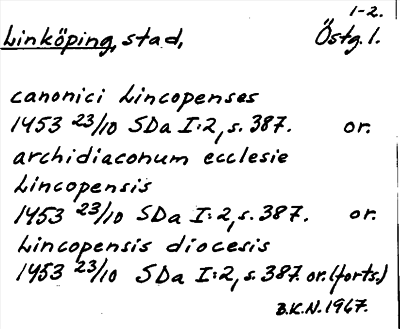 1-2.
Linköping, stad, Östg. l.
canonici Lincopenses
1453 23/10 SDa I:2, s. 387. or.
archidiaconum ecclesie
Lincopensis
1453 23/10 SDa I:2, s. 387. or.
Lincopensis diocesis
1453 23/10 SDa I:2, s. 387. or. (forts.)
B.K.N. 1967.